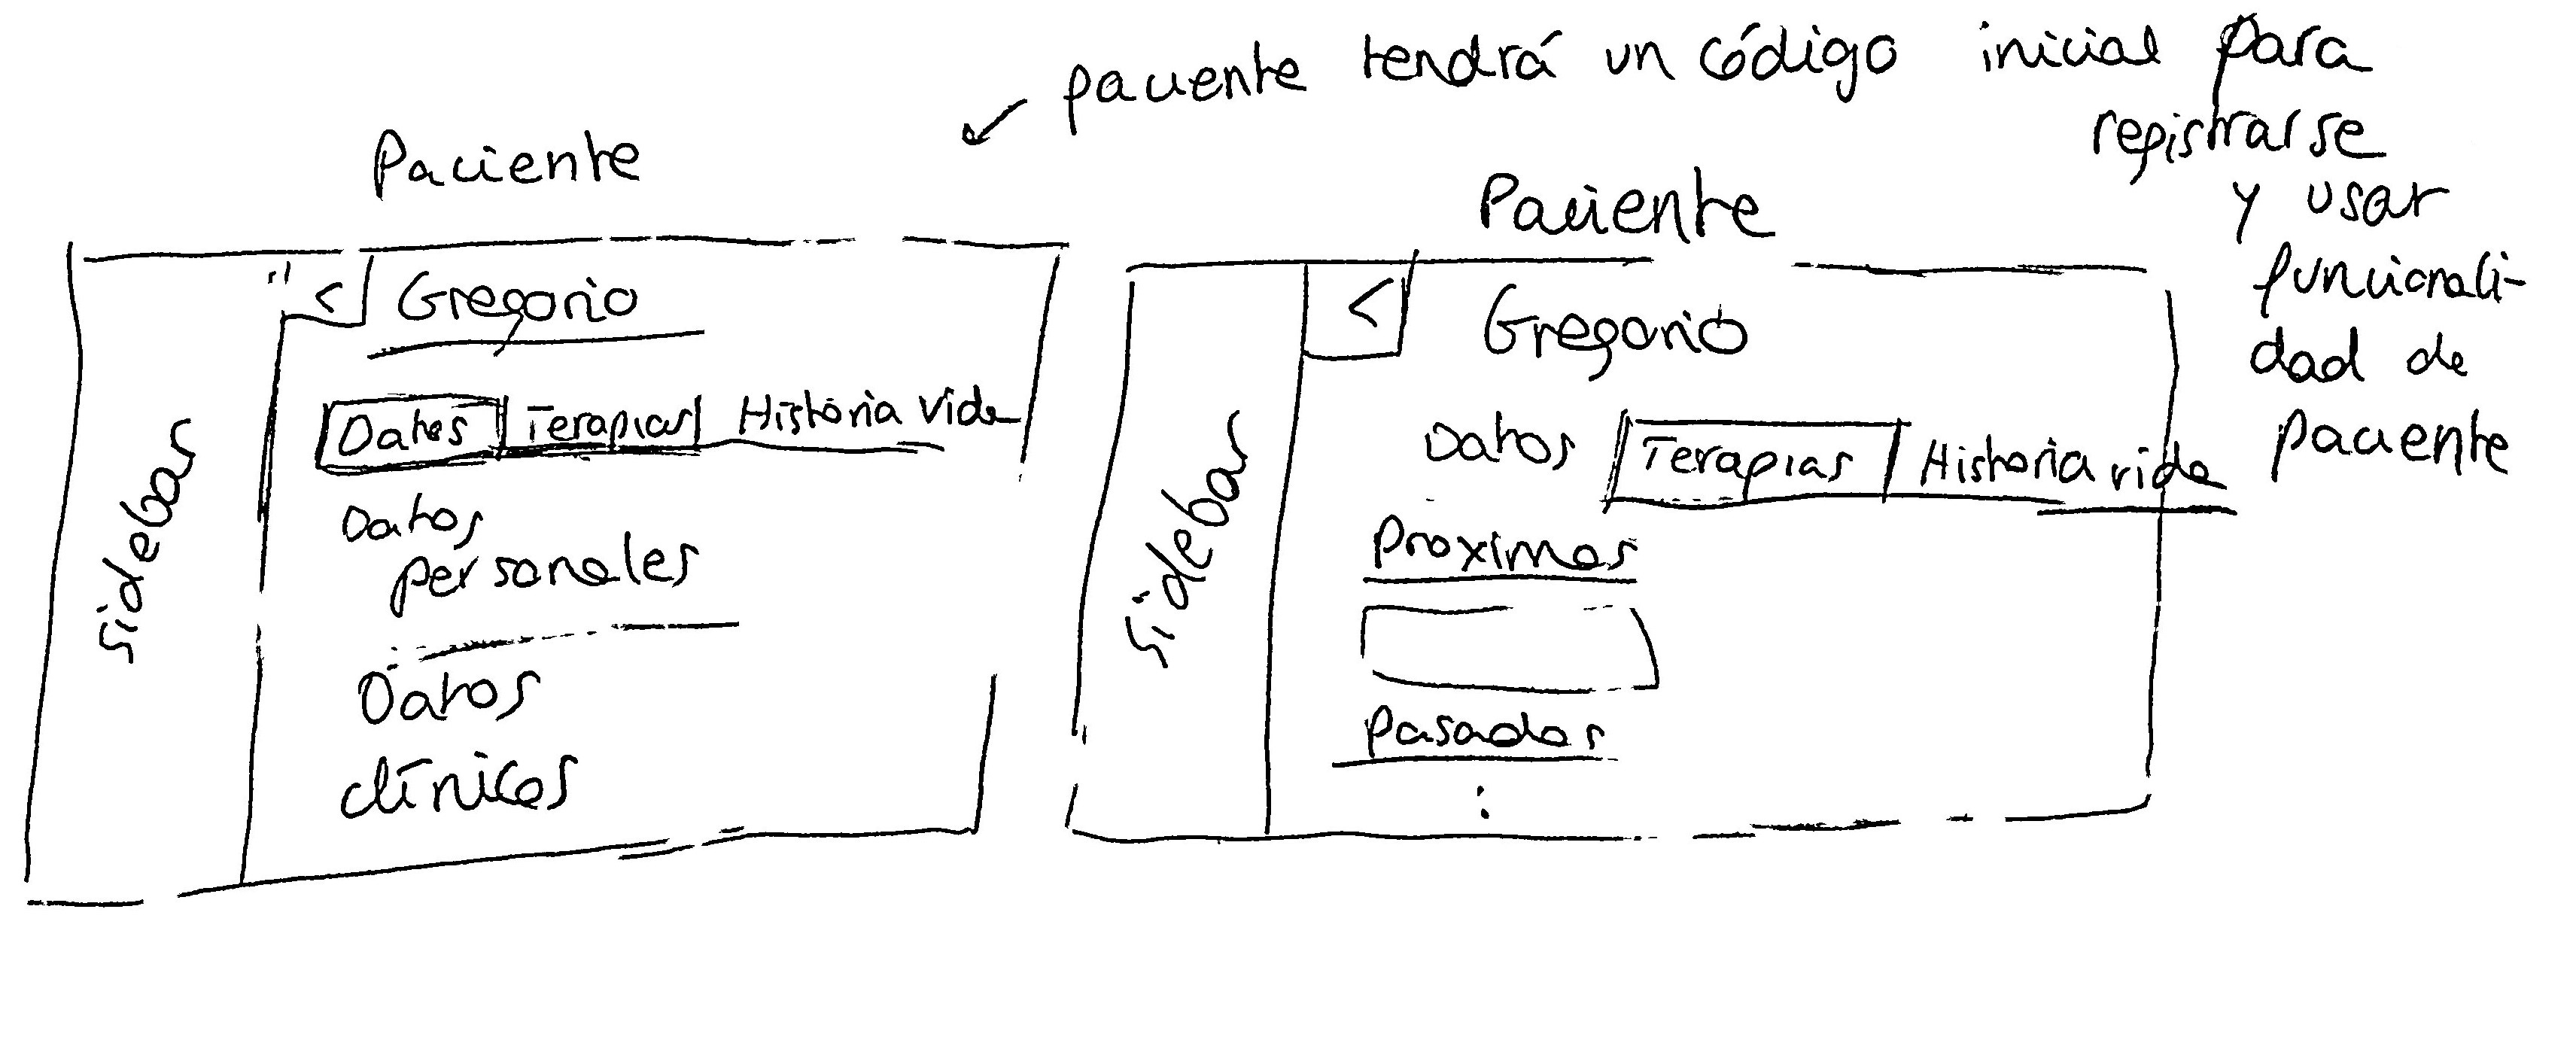 paciente tendrá un código inicial para
registrarse
y usar
funcionali-
dad de
paciente
Paciente
< Gregorio
Datos Terapias Historia Vida
sidebar
Datos
personales
Datos
clínicos
Paciente
< Gregorio
Datos Terapias Historia vida
sidebar
Proximas
Pasadas
: